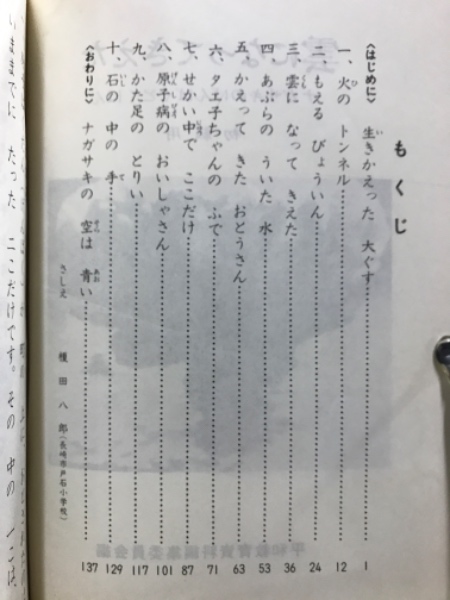 もくじ
〈はじめに〉 生きかえった 大ぐす 1
一、火の トンネル 12
二、もえる びょういん 24
三、雲に なって きえた 36
四、あぶらの ういた 水 53
五、かえって きた おとうさん 63
六、タエ子ちゃんの ふで 71
七、せかい中で ここだけ 87
八、原子病の おいしゃさん 101
九、かた足の とりい 117
十、石の 中の 手 129
〈おわりに〉 ナガサキの 空は 青い 137
さしえ 榎田八郎(長崎市戸石小学校)
いままでに たった 二こだけです。その 中の 一こは、